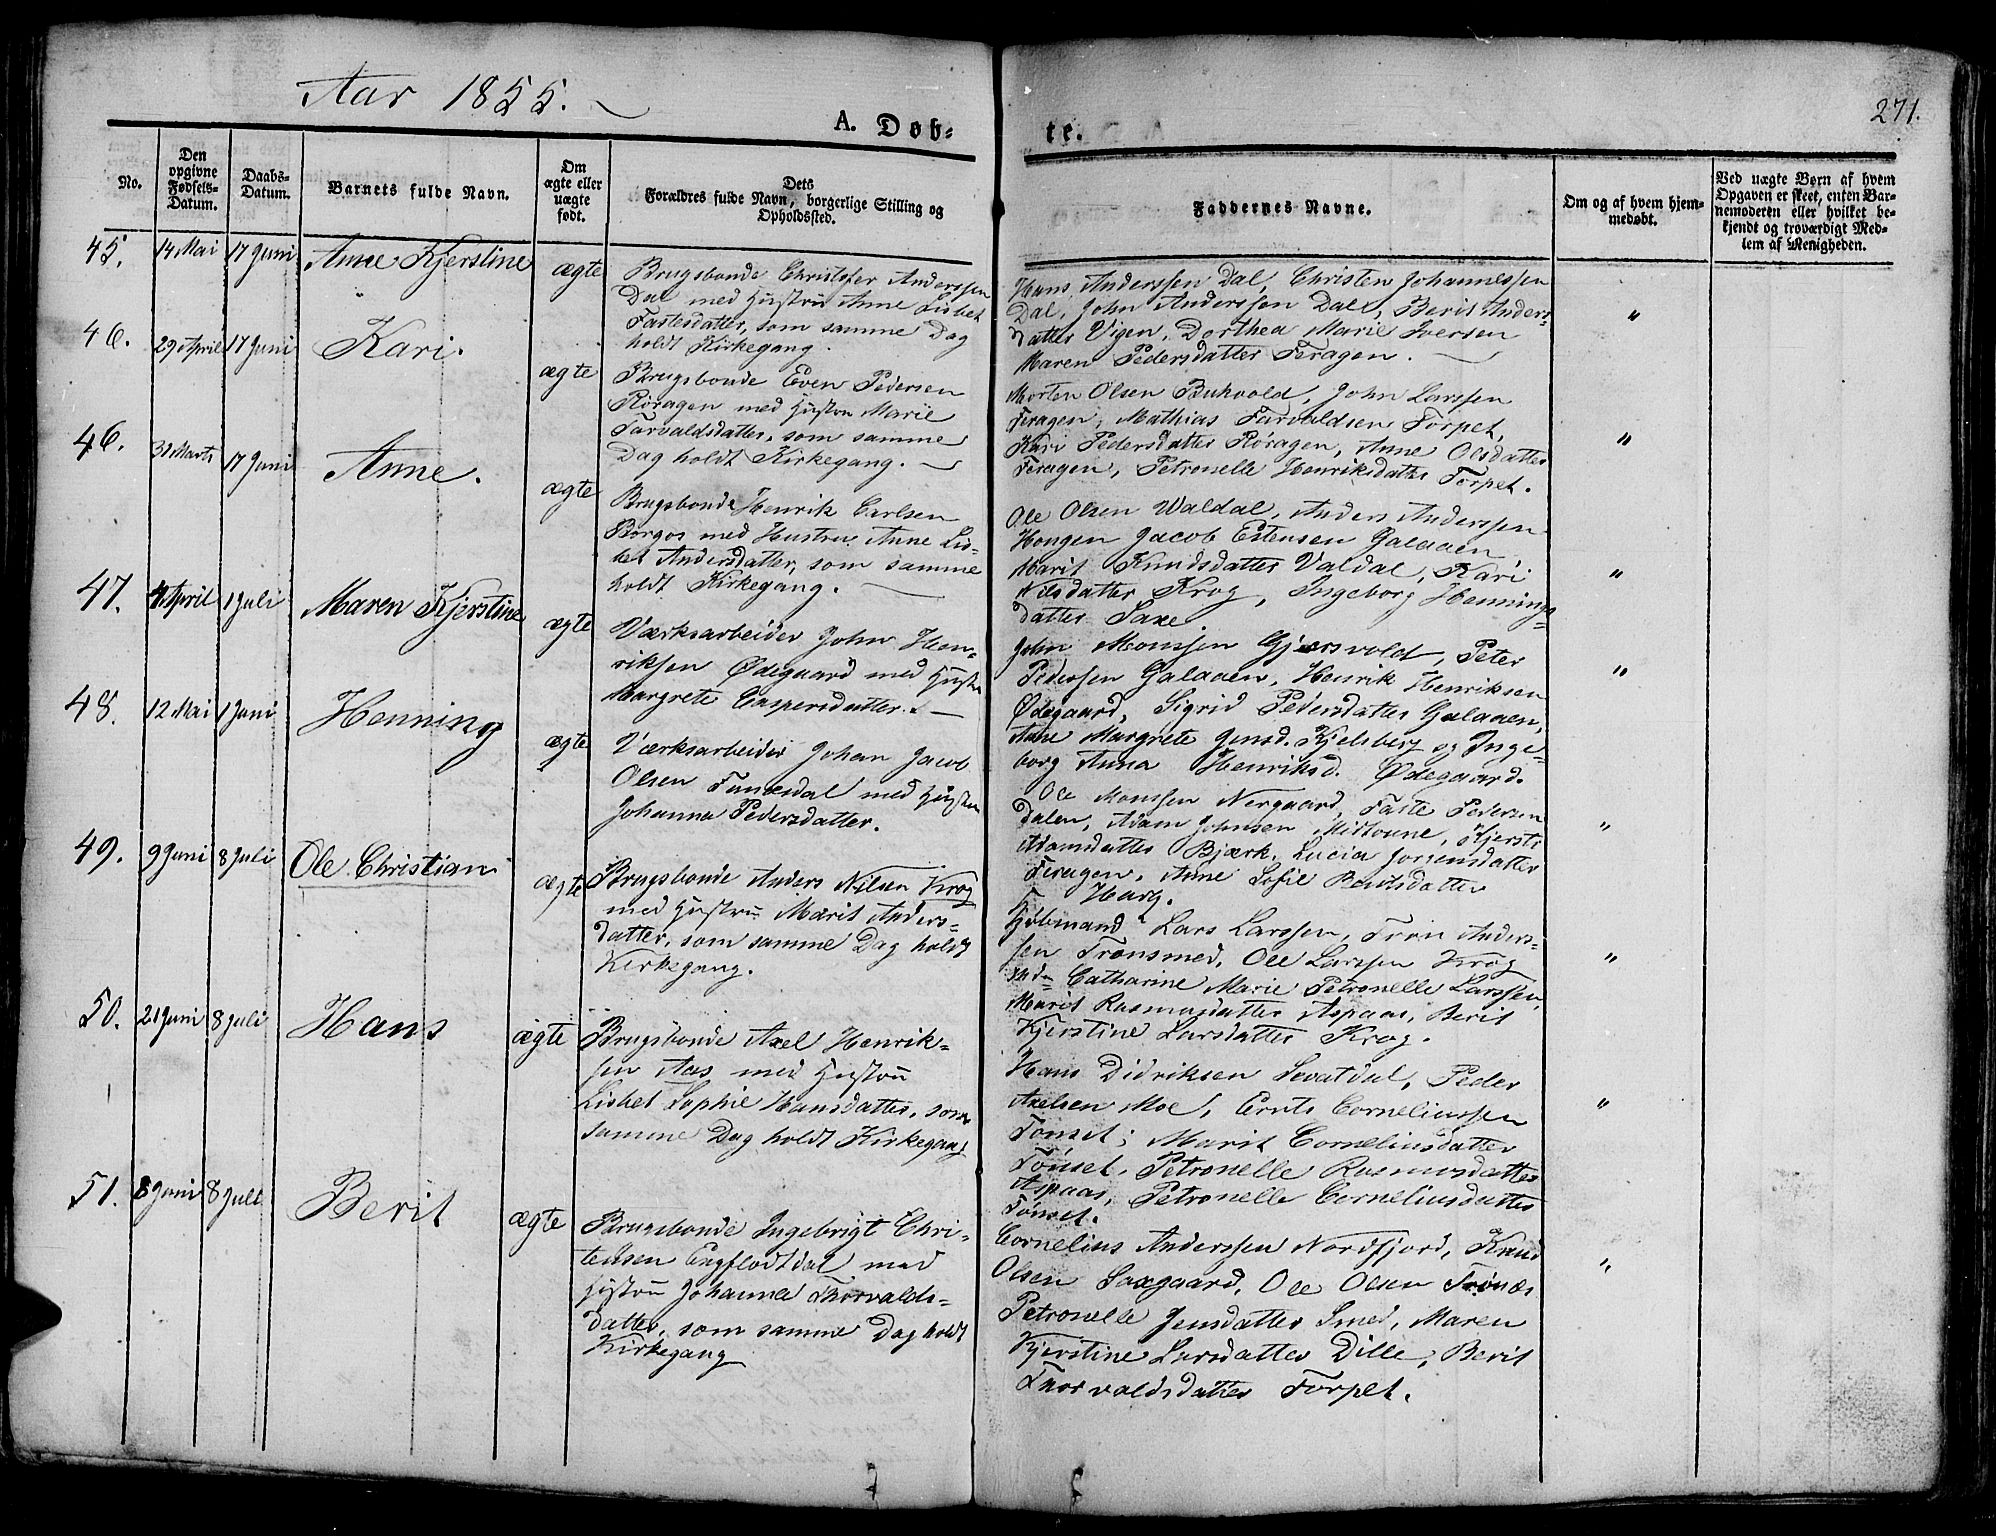 Aar 1855.
271.
A. Døb-
te.
No.
Den opgivne Fødsels-Datum.
Daabs-Datum.
Barnets fulde Navn.
Om ægte eller uægte født.
Dets
Forældres fulde Navn, borgerlige Stilling og
Opholdsted.
Faddernes Navne.
Om og af hvem hjem-
medøbt.
Ved uægte Børn af hvem
Opgaven er skeet, enten Bar-
nemoderen eller hvilket be-
kjendt og troværdigt Med-
lem af Menigheden.
45. 14 Mai 17 Juni Anne Kjerstine ægte
Brugsbonde Christofer Anderssen
Dal med Hustru Anne Lisbet
Fastesdatter, som samme Dag
holdt Kirkegang.
Hans Anderssen Dal, Christen Johannessen
Dal, John Anderssen Dal, Berit Anders-
datter Vigen, Dorthea Marie Iversen
Maren Pedersdatter Feragen.
"
46. 29 April 17 Juni Kari. ægte
Brugsbonde Even Pedersen
Røragen med Hustru Marie
Tarvaldsdatter, som samme
Dag holdt Kirkegang.
Morten Olsen Bukvold, John Larssen
Feragen, Mathias Tarvaldsen Torpet,
Kari Pedersdatter Røragen, Anne Olsdatter
Feragen, Petronelle Henriksdatter Torpet.
"
46. 31 Marts 17 Juni Anne. ægte
Brugsbonde Henrik Carlsen
Borgos med Hustru Anne Lis-
bet Andersdatter, som samme
holdt Kirkegang.
Ole Olsen Waldal, Anders Anderssen
Hongen Jacob Estensen Galaaen
Marit Knudsdatter Valdal, Kari
Nilsdatter Krog, Ingeborg Hennings-
datter Saxe
"
47. 4 April 1 Juli Maren Kjerstine ægte
Værksarbeider John Hen-
riksen Ødegaard med Hustru
Margrete Caspersdatter.
John Monssen Gjersvold, Peter
Pederssen Galaaen, Henrik Henriksen
Ødegaard, Sigrid Pedersdatter Galaaen,
Anne Margrete Jensd. Kjelsberg og Inge-
borg Anna Henriksd. Ødegaard.
"
48. 12 Mai 1 Juni Henning ægte
Værksarbeider Johan Jacob
Olsen Funesdal med Hustru
Johanna Pedersdatter.
Ole Monssen Nergaard, Faste Pedersen
Dalen, Adam Johnsen Midtoune, Kjersti
Adamsdatter Bjærk, Lucia Jørgensdatter
Feragen, Anne Sofie Bentsdatter
Harg.
"
49. 9 Juni 8 Juli Ole Christian ægte
Brugsbonde Anders Nilsen Krog
med Hustru Marit Anders-
datter, som samme Dag holdt
Kirkegang.
Kjøbmand Lars Larssen, Tron Anders-
sen Tronsmed, Ole Larssen Krog
Mdm Catharine Marie Petronelle Larssen,
Marit Rasmusdatter Aspaas, Berit
Kjerstine Larsdatter Krog.
"
50. 21 Juni 8 Juli Hans ægte
Brugsbonde Axel Henrik-
sen Aas med Hustru
Lisbet Sophie Hansdatter, som
samme Dag holdt Kirkegang
Hans Didriksen Sevatdal, Peder
Axelsen Moe, Ernts Corneliussen
Tønset, Marit Corneliusdatter
Tønset, Petronelle Rasmusdatter
Aspaas, Petronelle Corneliusdatter
Tønset.
"
51. 8 Juni 8 Juli Berit ægte
Brugsbonde Ingebrigt Chri-
tensen Engflodtdal med
Hustru Johanna Thorvalds-
datter, som samme Dag holdt
Kirkegang
Cornelius Anderssen Nordfjord, Knud
Olsen Saxgaard, Ole Olsen Trønæs
Petronelle Jensdatter Smed, Maren
Kjerstine Larsdatter Dille, Berit
Thorvaldsdatter Torpet.
"